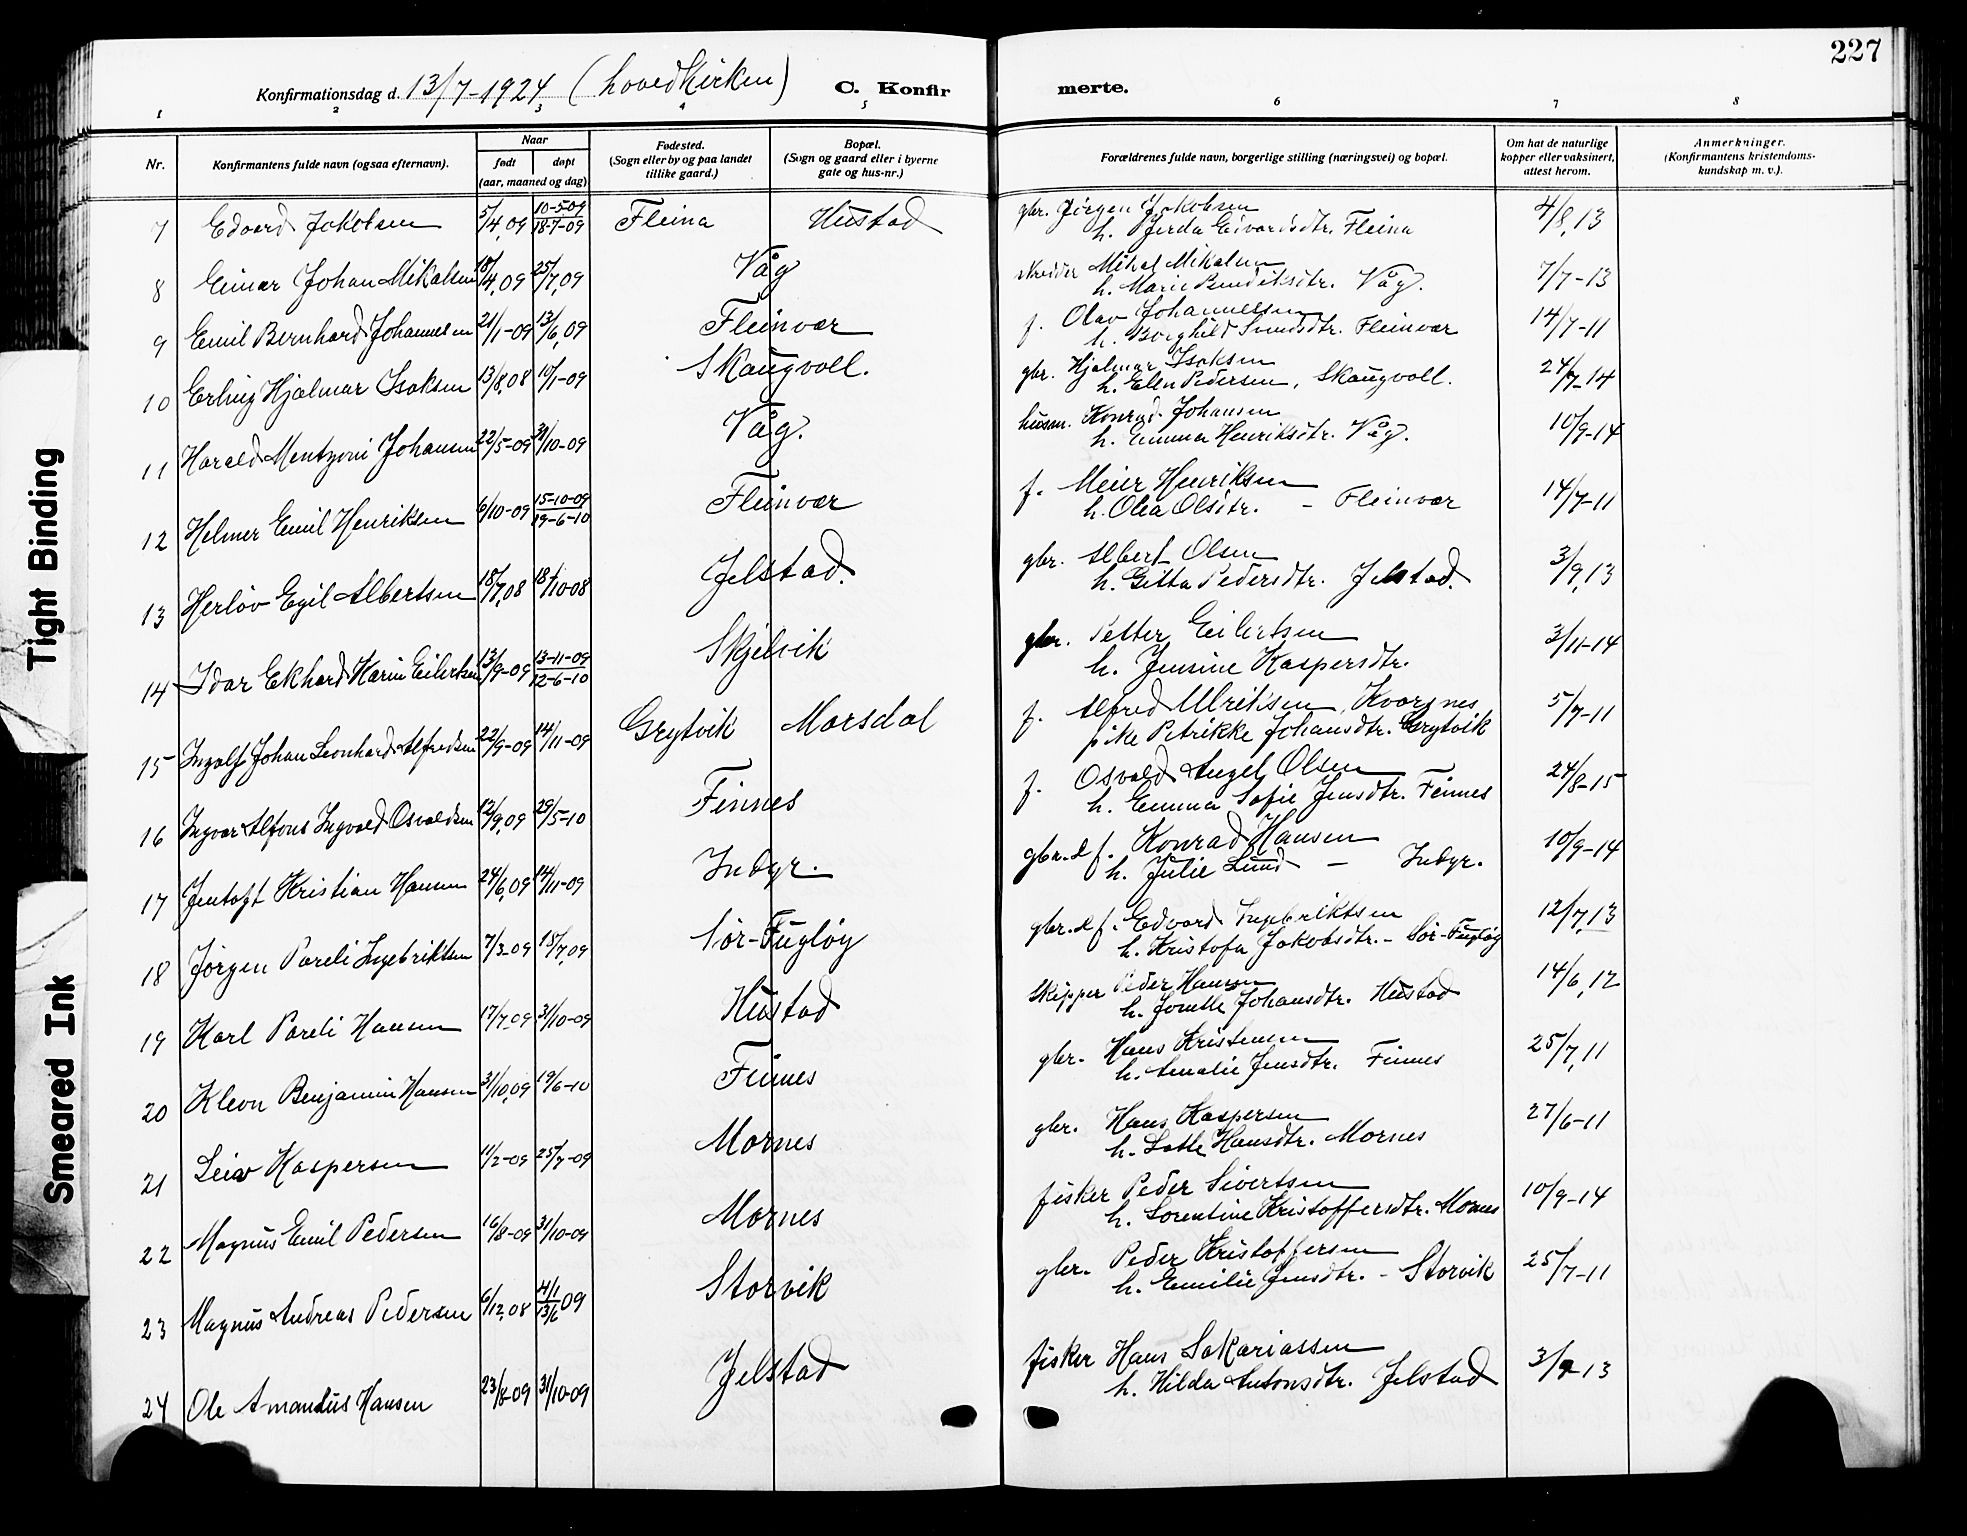 227
Konfirmationsdag d. 13/7-1924 (hovedkirken) C. Konfirmerte.
1 2 3 4 5 6 7 8
Nr. Konfirmantens fulde navn (ogsaa efternavn). Naar født døpt (aar, maaned og dag) Fødested. (Sogn eller by og paa landet tillike gaard.) Bopæl. (Sogn og gaard eller i byerne gate og hus-nr.) Forældrenes fulde navn, borgerlige stilling (næringsvei) og bopæl. Om hat de naturlige kopper eller vaksinert, attest herom. Anmerkninger. (Konfirmantens kristendomskundskap m. v.).
7 Edvard Jakobsen 5/4,09 10-5-09 18-7-09 Fleina Hustad gbr. Jørgen Jakobsen 4/8,13
h. Gjerda Edvardsdtr. Fleina
8 Einar Johan Mikalsen 18/4,09 25/7,09 Våg skredder Mikal Mikalsen 7/7-13
h. Marie Bendiksdtr. Våg.
9 Emil Bernhard Johannesen 21/1-09 13/6,09 Fleinvær f. Olav Johannessen 14/7-11
h. Borghild Svendsdtr. Fleinvær
10 Erling Hjalmar Isaksen 13/8,08 10/1-09 Skaugvoll. gbr. Hjalmar Isaksen 24/7-14
h. Elen Pedersen, Skaugvoll.
11 Harald Mentzoni Johansen 22/5-09 31/10-09 Våg. husm. Konrad Johansen 10/9-14
h. Emma Henriksdtr. Våg.
12 Helmer Emil Henriksen 6/10-09 15-10-09 19-6-10 Fleinvær f. Meier Henriksen 14/7-11
h. Olea Olsdtr. - Fleinvær
13 Herløv Egil Albertsen 18/7,08 18/10-08 Jelstad. gbr. Albert Olsen 3/9,13
h. Gitta Pedersdtr. Jelstad.
14 Idar Ekhard Karin Eilertsen 13/9-09 13-11-09 12-6-10 Skjelvik gbr. Petter Eilertsen 3/11-14
h. Jensine Kaspersdtr.
15 Ingolf Johan Leonhard Alfredsen 22/9-09 14/11-09 Grytvik Mårsdal f. Alfred Ulriksen, Kvarsnes 5/7-11
pike Petrikke Johansdtr. Grytvik
16 Ingvar Alfons Ingvald Osvaldsen 12/9,09 29/5-10 Finnes f. Osvald Angel Olsen 24/8-15
h. Emma Sofie Jensdtr. Finnes
17 Jentoft Kristian Hansen 24/6,09 14/11-09 Indyr. gbr. & f. Konrad Hansen 10/9-14
h. Julie Lund - Indyr.
18 Jørgen Pareli Ingebriktsen 7/3-09 15/7,09 Sør-Fugløy gbr. & f. Edvard Ingebriktsen 12/7,13
h. Kristofa Jakobsdtr. - Sør-Fugløy
19 Karl Pareli Hansen 17/7-09 31/10-09 Hustad Skipper Peder Hansen 14/6,12
h. Johansdtr. Hustad
20 Kleon Benjamin Hansen 31/10,09 19/6-10 Finnes gbr. Hans Kristensen 25/7,11
h. Amalie Jensdtr. Finnes
21 Leiv Kaspersen 11/2-09 25/7-09 Mørnes gbr. Hans Kaspersen 27/6-11
h. Lotte Hansdtr. Mørnes
22 Magnus Emil Pedersen 16/8-09 31/10-09 Mørnes fisker Peder Sivertsen 10/9-14
h. Lorentine Kristoffersdtr. Mørnes
23 Magnus Andreas Pedersen 6/12,08 4/1 13/6 09 Storvik gbr. Peder Kristoffersen 25/7-11
h. Emilie Jensdtr. - Storvik
24 Ole Amandus Hansen 23/8-09 31/10-09 Jelstad fisker Hans Sakariassen 3/9-13
h. Hilda Antonsdtr. Jelstad
Tight Binding
Smeared Ink